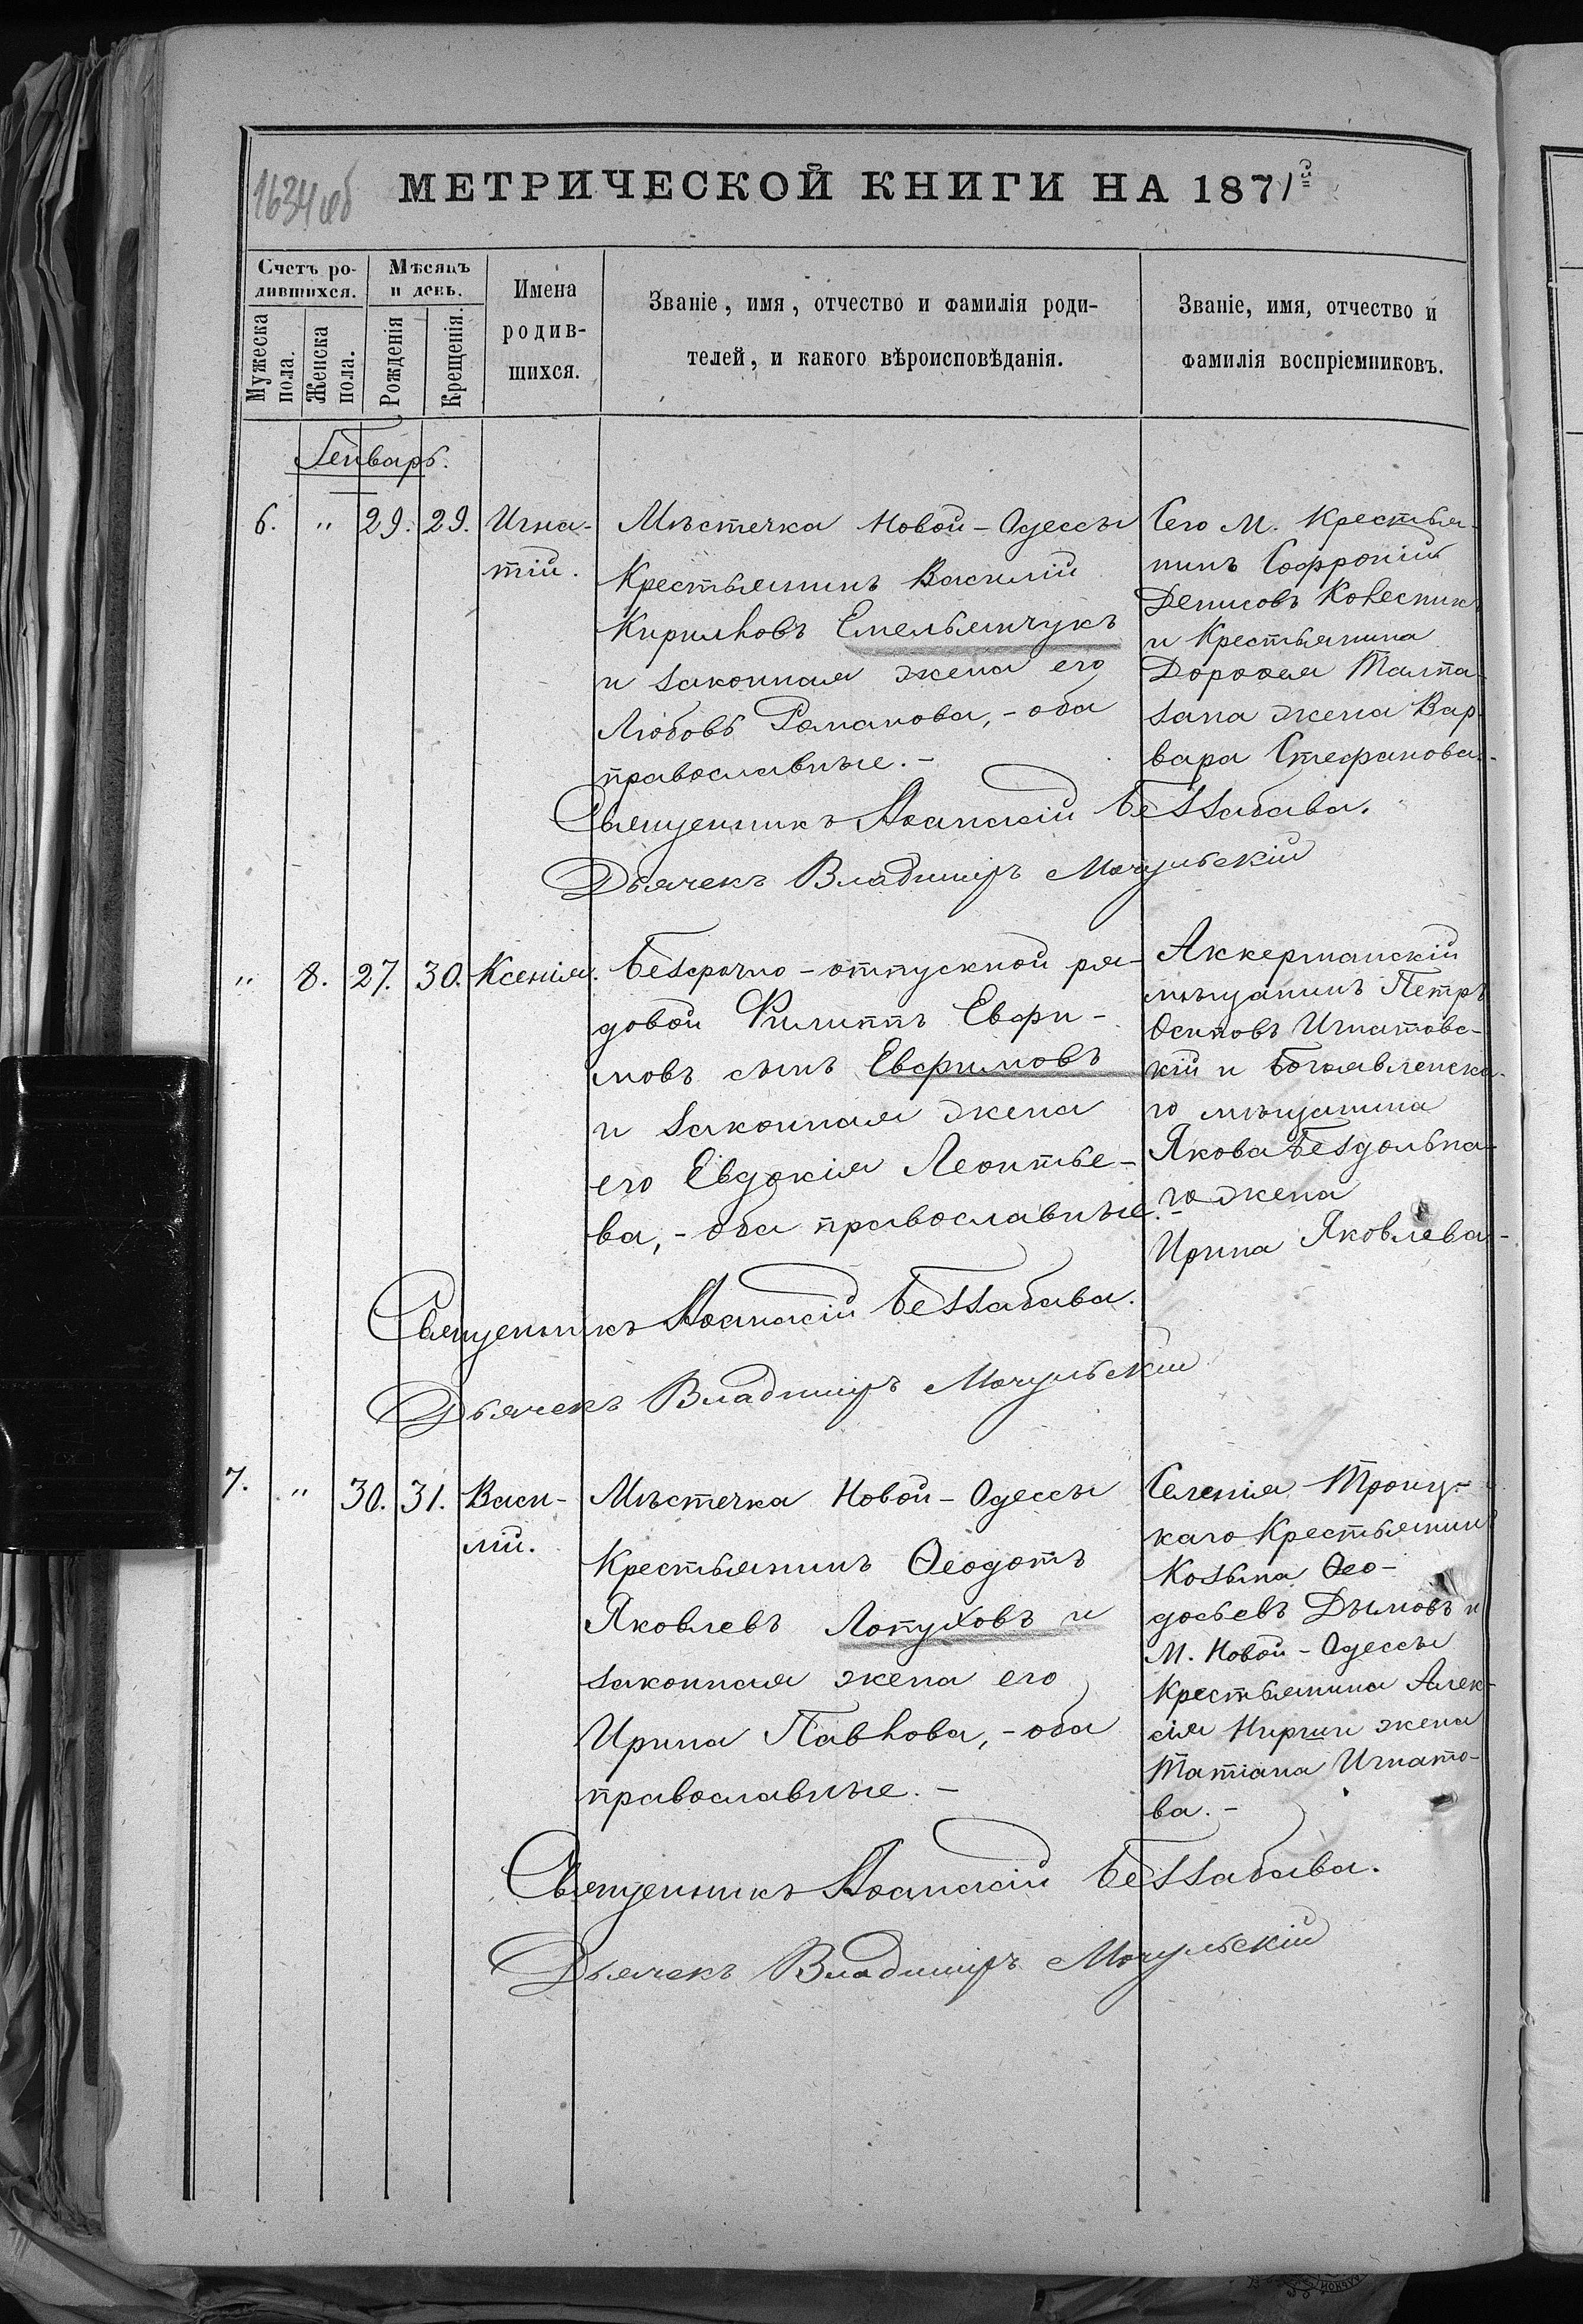 1634 об
МЕТРИЧЕСКОЙ КНИГИ НА 1871й
Счетъ ро-
дившихся.
Мѣсяцъ
и день.
Имена
родив-
шихся.
Званіе, имя, отчество и фамилія роди-
телей, и какого вѣроисповѣданія.
Званіе, имя, отчество и
фамилія воспріемниковъ.
Мужеска
пола.
Женска
пола.
Рожденія
Крещенія.
Генварь.
6. " 29. 29. Игна-
тій.
Мѣстечка Новой-Одессы
Крестьянинъ Василій
Кириловъ Емельянчукъ
и законная жена его
Любовь Романова, - оба
православные. -
Сего М. Крестья-
нинъ Софроній
Денисовъ Колесник
и Крестьянина
Дорофея Талпа-
зана жена Вар-
вара Стефанова. -
Священникъ Аѳанасій Беззабава.
Дьячекъ Владиміръ Мочульскій
" 8. 27. 30. Ксенія.
Безсрочно-отпускной ря-
довой Филиппъ Евфи-
мовъ сынъ Евфимовъ
и законная жена
его Евдокія Леонтье-
ва, - оба православные. -
Аккерманскій
мѣщанинъ Петръ
Осиповъ Игнатовс-
кій и Богоявленска-
го мѣщанина
Якова Бездольна-
го жена
Ирина Яковлева -
Священникъ Аѳанасій Беззабава.
Дьячекъ Владиміръ Мочульскій
7. " 30. 31. Васи-
лій.
Мѣстечка Новой-Одессы
Крестьянинъ Ѳеодотъ
Яковлевъ Лопуховъ и
законная жена его
Ирина Павлова, - оба
православные. -
Селенія Троиц-
каго Крестьянинъ
Козьма Ѳео-
досьевъ Дымовъ и
М. Новой-Одессы
Крестьянина Алек-
сія жена
Татіана Игнато-
ва. -
Священникъ Аѳанасій Беззабава.
Дьячекъ Владиміръ Мочульскій